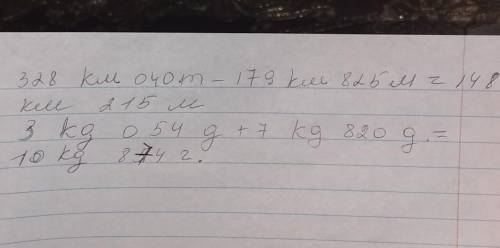 328 км 040m - 179 км 825 м = 148
км 215 м
3 kg 054 g + 7 kg 820 g. =
10 kg 874 г.